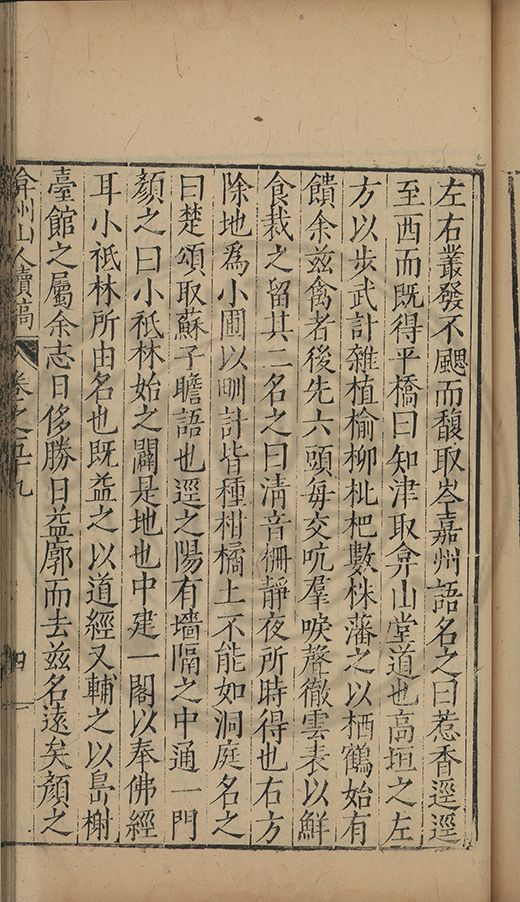 左右叢發不颸而馥取岑嘉州語名之曰惹香逕逕
至西而既得平橋曰知津取弇山堂道也高垣之左
方以步武計雜植榆柳枇杷數株藩之以栖鶴始有
饋余兹禽者後先六頭每交吭羣唳聲徹雲表以鮮
食栽之留其二名之曰清音柵靜夜所時得也右方
除地爲小圃以甽計皆種柑橘上不能如洞庭名之
曰楚頌取蘇子瞻語也逕之陽有墻隔之中通一門
顏之曰小祇林始之闢是地也中建一閣以奉佛經
耳小祇林所由名也既益之以道經又輔之以島榭
臺館之屬余志日侈勝日益廓而去兹名遠矣顏之
弇州山人續稿 卷之五十九 四